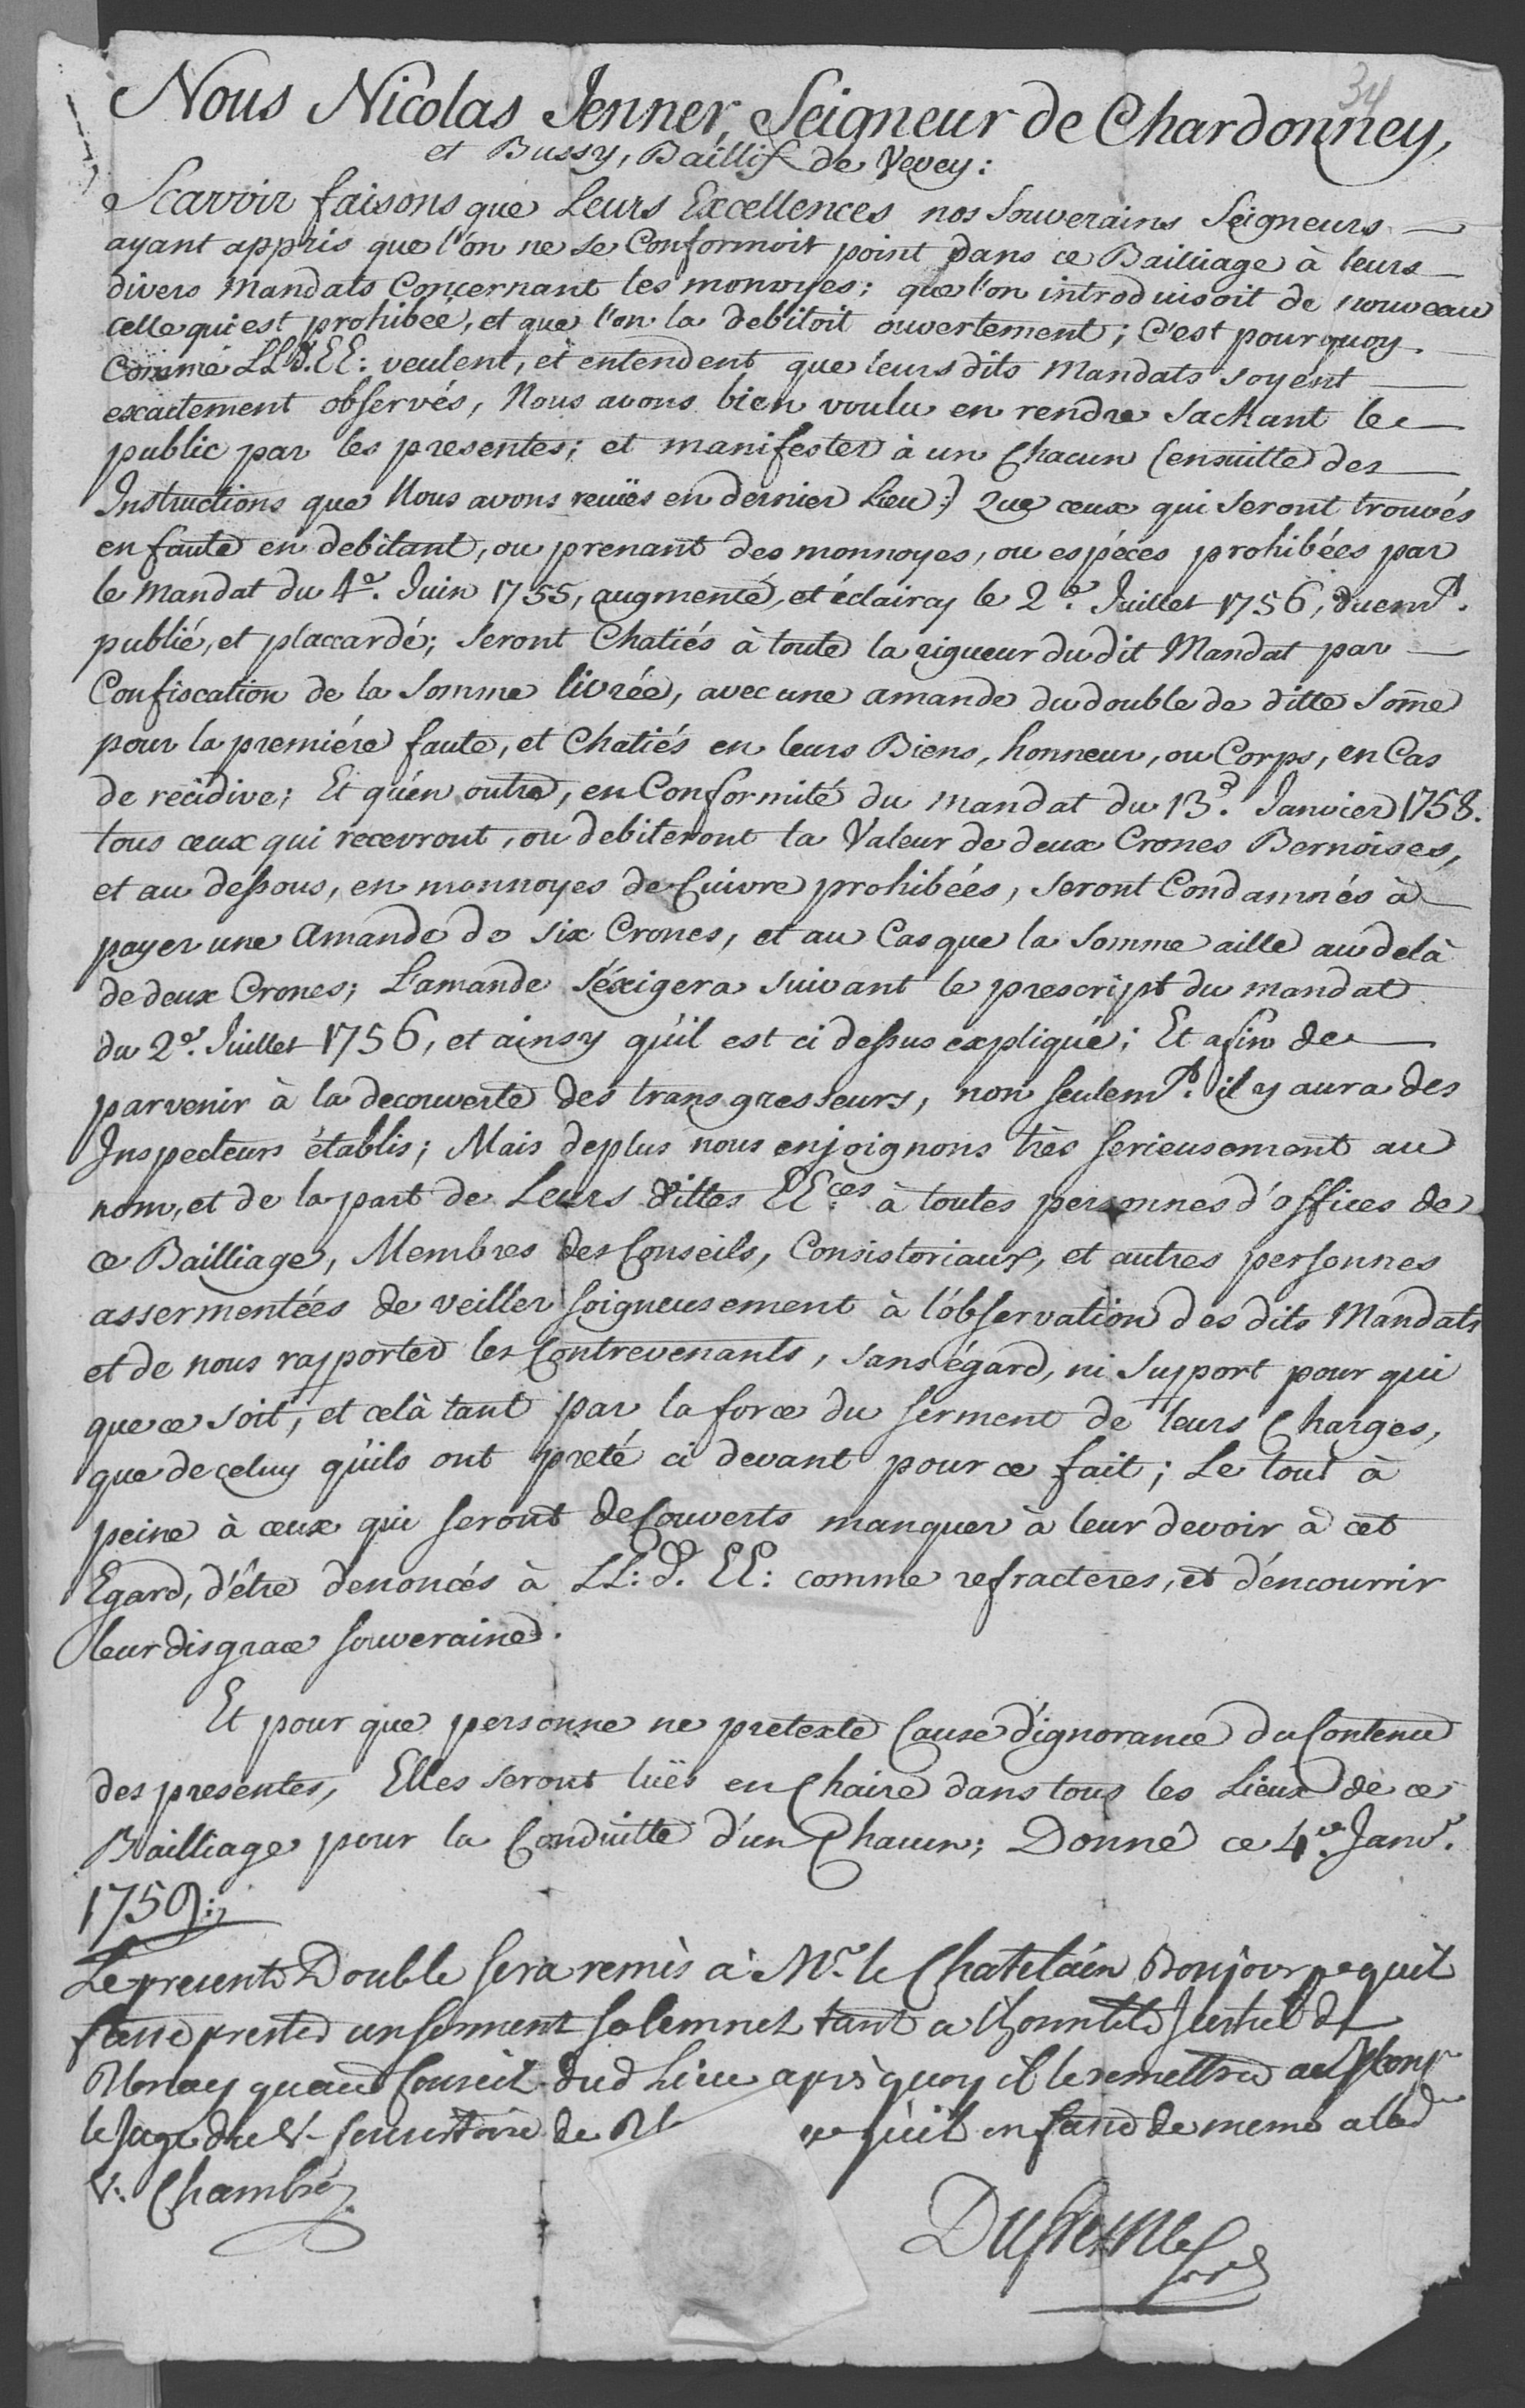 34
Nous Nicolas Jenner, Seigneur de Chardonney,
et Bussy, Baillif de Vevey:
Scavoir faisons que Leurs Excellences nos Souverains Seigneurs
ayant appris que l'on ne se Conformoit point dans ce Bailliage à leurs
divers Mandats Concernant les monoyes; que l'on introduisoit de nouveau
celle qui est prohibée, et que l'on la debitoit ouvertement; C'est pourquoy
Comme LL.d.EE: veulent, et entendent que leurs dits Mandats soyent
exactement observés, Nous avons bien voulu en rendre sachant le
public par les presentes; et manifester à un Chacun (ensuitte des
Instructions que Nous avons reuës en dernier Lieu:) Que ceux qui seront trouvés
en faute en debitant, ou prenant des monnoyes, ou espéces prohibées par
le Mandat du 4e. Juin 1755, augmenté, et éclaircy le 2e. Juillet 1756, duemt.
publié, et placcardé; seront Chatiés à toute la rigueur du dit Mandat par
Confiscation de la Somme livrée, avec une amande du double de ditte Some
pour la premiére faute, et Chatiés en leurs Biens, honneur, ou Corps, en Cas
de recidive; Et qu'en outre, en Conformité du mandat du 13e. Janvier 1758.
tous ceux qui recevront, ou debiteront la Valeur de deux Crones Bernoises,
et au dessous, en monnoyes de Cuivre prohibées, seront Condamnés à
payer une Amande de six Crones, et au Cas que la Somme aille au delà
de deux Crones; L'amande s'éxigera suivant le prescript du mandat
du 2e. Juillet 1756, et ainsy qu'il est ci dessus expliqué; Et afin de
parvenir à la decouverte des transgresseurs, non seulemt. il y aura des
Inspecteurs établis; Mais deplus nous enjoignons très serieusement au
nom, et de la part de Leurs dittes EE:ces à toutes personnes d'offices de
ce Bailliage, Membres des Conseils, Consistoriaux, et autres personnes
assermentées de veiller soigneusement à l'observation des dits Mandats
et de nous rapporter les Contrevenants, sans égard, ni support pour qui
que ce soit, et celà tant par la force du serment de leurs Charges,
que de celuy qu'ils ont preté ci devant pour ce fait; Le tout à
peine à ceux qui seront deCouverts manquer à leur devoir à cet
Egard, d'être denoncés à LL:d.EE: comme refracteres, et d'encourrir
leur disgrace souveraine.
Et pour que personne ne pretexte Cause d'ignorance du Contenu
des presentes, Elles seront luës en Chaire dans tous les Lieux de ce
Bailliage pour la Conduitte d'un Chacun; Donné ce 4e. Janvr.
1759:
Le present Double sera remis à Mr. le Chatelain Bonjour pr quil
fasse prester un serment solemnel tant a lhonnble Justice de
Blonay quau Conseil dud Lieu après quoy il le remettra au
le Juge du V. Consistoire de Bl quil en fasse de meme a lad
V. Chambre
Dufresne